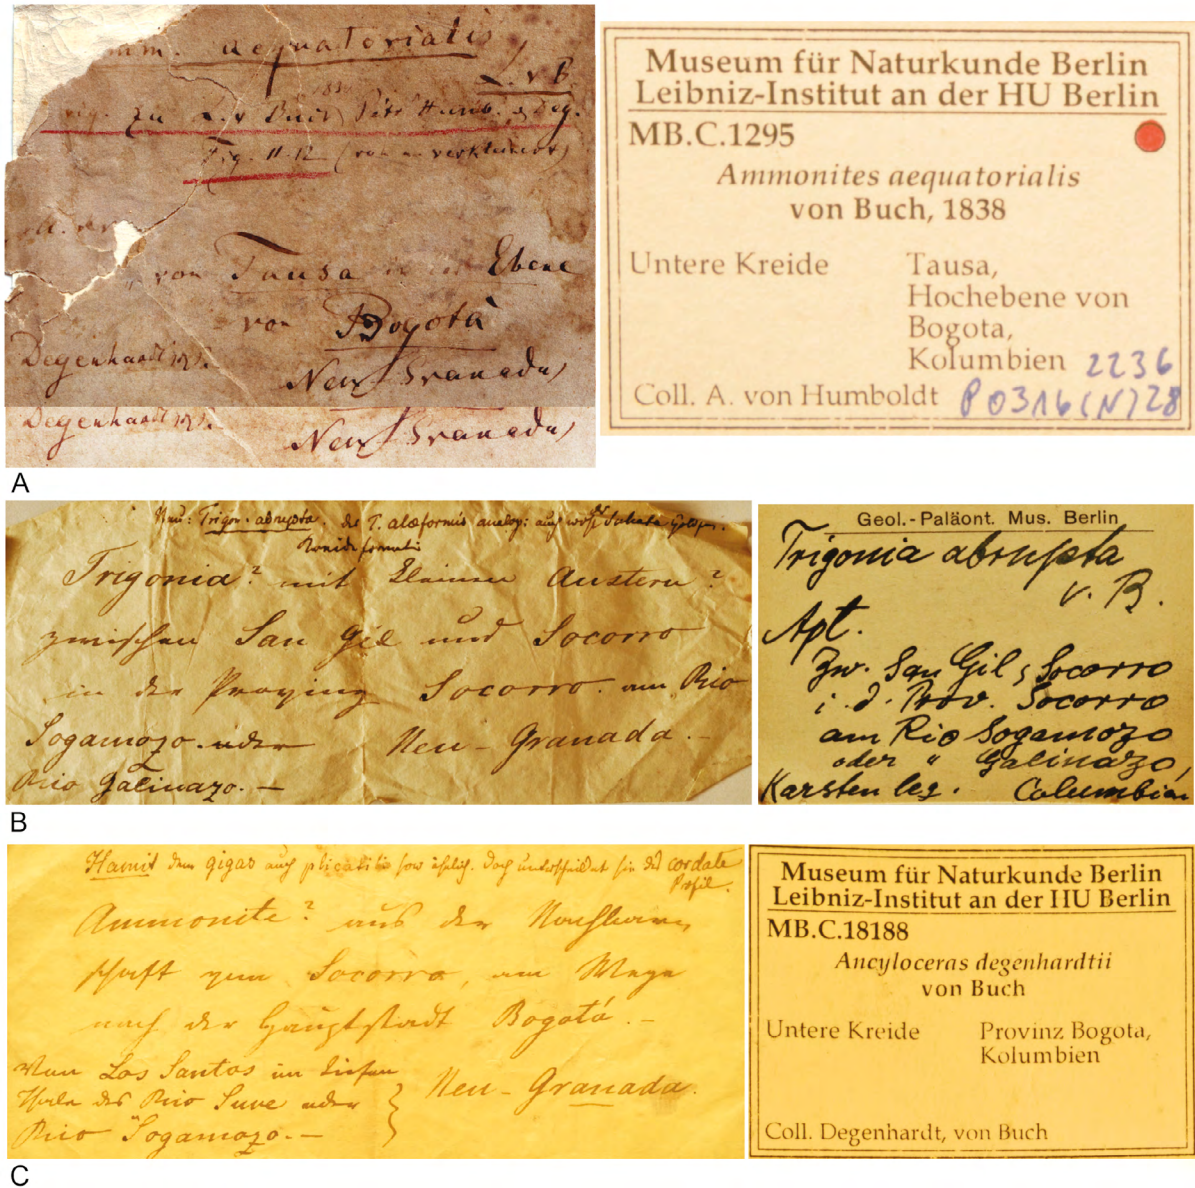 aequatorialis
L. v B
zu L. v Buch Petr Humb. & Deg.
Fig. 11. 12
von Tausa Ebene
von Bogotà
Degenhardt
New Granada
Degenhardt
New Granada
A
Museum für Naturkunde Berlin
Leibniz-Institut an der HU Berlin
MB.C.1295
Ammonites aequatorialis
von Buch, 1838
Untere Kreide Tausa,
Hochebene von
Bogota,
Kolumbien 2236
Coll. A. von Humboldt P 0316 (N) 28
Trigon. abrupta. T. alaeformis
Trigonia? mit kleinen Austern?
zwischen San Gil und Socorro
in der Provinz Socorro am Rio
Sogamozo oder Neu-Granada.-
Rio Galinazo.-
B
Geol.-Paläont. Mus. Berlin
Trigonia abrupta
v. B.
Apt.
Zw. San Gil & Socorro
i. d. Prov. Socorro
am Rio Sogamozo
oder " Galinazo,
Karsten leg. Columbien
Hamit dem gigas auch cordate
Ammonite? aus der Nachbar-
schaft von Socorro, am Wege
nach der Hauptstadt Bogotá.-
Von Los Santos im tiefen
Thale des Rio Suve oder
Rio Sogamozo.-
Neu-Granada.
C
Museum für Naturkunde Berlin
Leibniz-Institut an der HU Berlin
MB.C.18188
Ancyloceras degenhardtii
von Buch
Untere Kreide Provinz Bogota,
Kolumbien
Coll. Degenhardt, von Buch